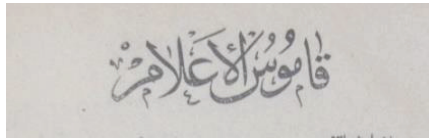 قَامُوسُ الأَعْلَامِ